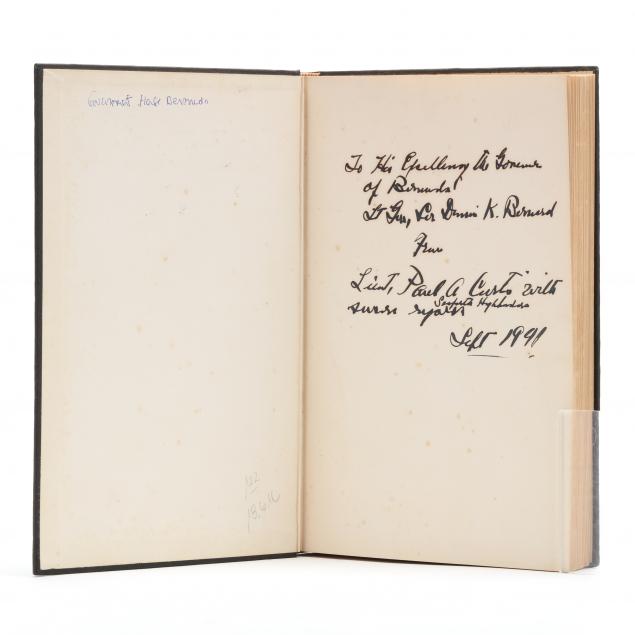 Government House Bermuda
To His Excellency the Governor
of Bermuda
Lt Gen, Sir Denis K. Bernard
From
Lieut, Paul A Curtis with
Seaforth Highlanders
sincere regards
Sept 1941